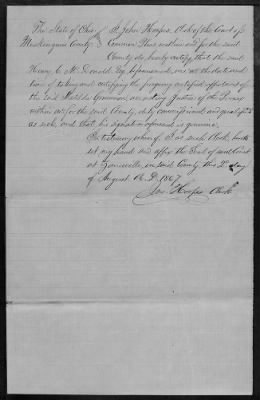 The State of Ohio } I, John Hosfes, Clk of the Court of
Muskingum County } Common Pleas within and for the said
County do hereby certify that the said
Henry C. McDonald Esq. before named, was at the date and
time of taking and certifying the foregoing certified affidavit of
the said Matilda an acting Justice of the Peace
within and for the said County, duly commissioned and qualified
as such, and that his signature aforesaid is genuine.
In testimony whereof I as such Clerk hereto
set my hand and affix the Seal of said Court
at Zanesville, in said County this 2d day
of August A.D. 1867
Clerk